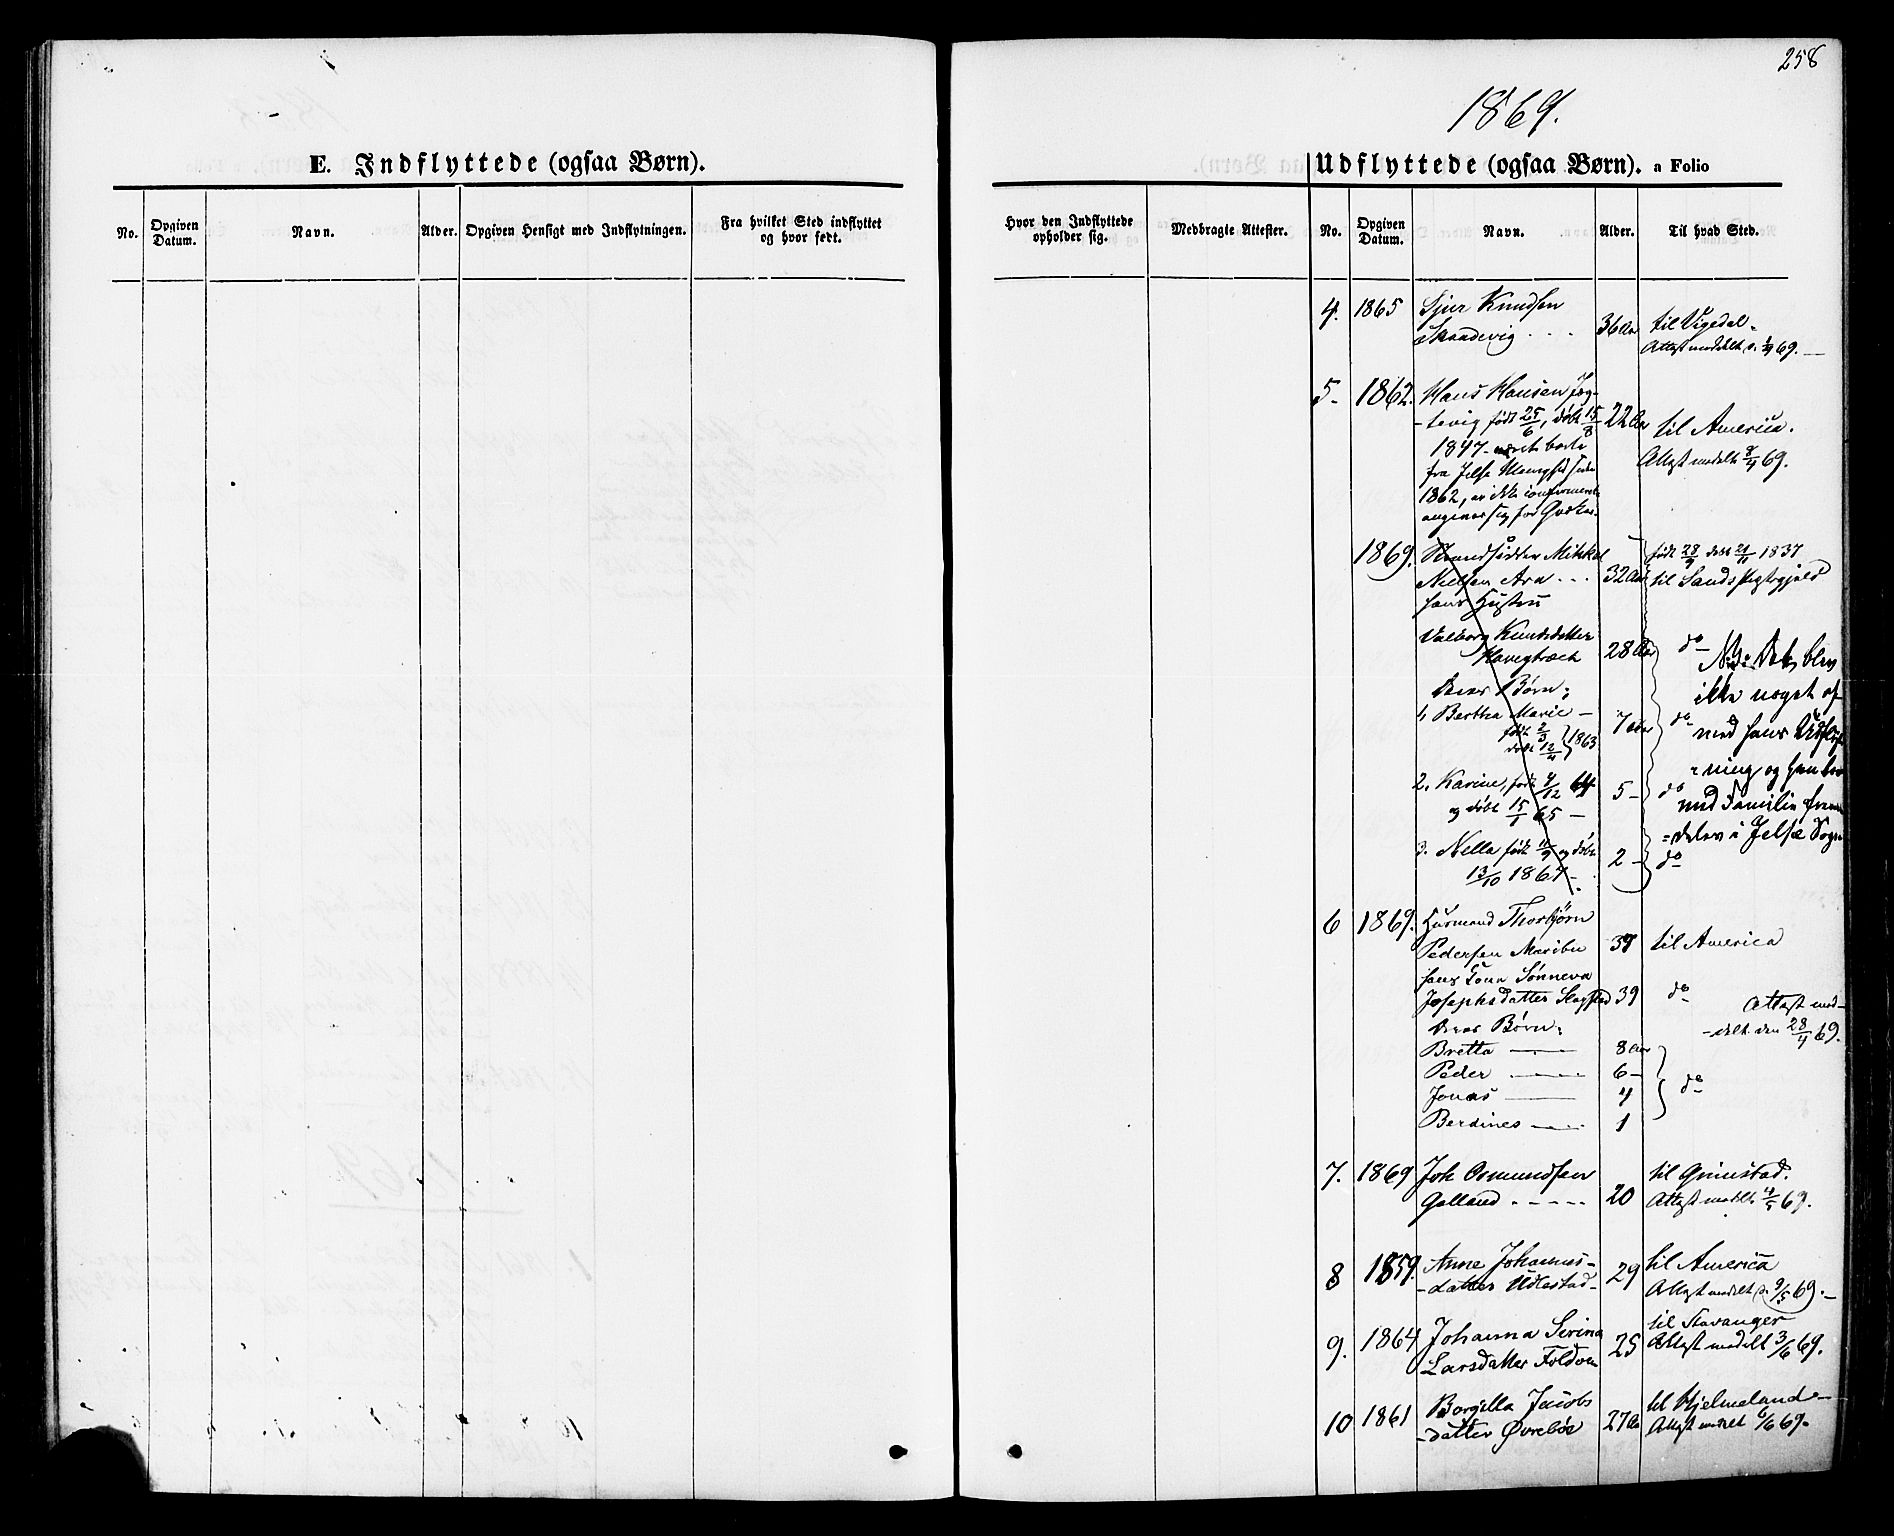 258
1869.
E. Indflyttede (ogsaa Børn).
Udflyttede (ogsaa Børn). a Folio
No.
Opgiven Datum.
Navn.
Alder.
Opgiven Hensigt med Indflytningen.
Fra hvilket Sted indflyttet
og hvor født.
Hvor den Indflyttede
opholder sig.
Medbragte Attester.
No.
Opgiven Datum.
Navn.
Alder.
Til hvad Sted.
4. 1865 Sjur Knudsen
Skandevig . . . 36 Aar til Vigedal.
Attest meddelt d. 1/4 69. —
5- 1862. Hans Hansen Jøg-
-tevig født 25/6, døbt 15/8 22 Aar til America.
1847 - været borte Attest meddelt 8/4 69.
fra Jelse siden
1862, er ikke confirmeret
angiver sig for Qvæker.
1869. Strandsidder Mikkel født 28/9 døbt 21/11 1837
Nielsen Ara . . . 32 Aar til Sands Præstegjeld
hans Hustru
Valborg Knudsdatter
28 Aar do
deres Børn:
1, Bertha Marie - 7 Aar do
født 2/3
døbt 12/4 } 1863
2. Karine, født 4/12 64 5 - do
og døbt 15/1 65 —
3. Nella født 11/9 og døbt 2 - do
13/10 1867 -
NB: Det blev
ikke noget af
med hans Udflyt-
-ning og han bor
med Familie frem-
=deles i Jelse Sogn
6 1869. Husmand Thorbjørn
Pedersen Maribu 37 til America
hans Kona Sønneva
Josephsdatter 39 do
Attest med-
-delt den 28/4 69.
deres Børn:
Bretta — 8 Aar
Peder — 6 -
Jonas — 4 do
Berdines — 1
7. 1869 Joh Osmundsen til Grimstad.
Gilland . - - - - 20 Attest meddelt 4/5 69.
8 1859. Anne Johannes- til America
-datter Udlestad - 29 Attest meddelt d. 9/5 69. —
9. 1864 Johanna Serina til Stavanger
Larsdatter Foldøen 25 Attest meddelt 3/6 69.
10 1861 Borgilla Jacobs til Hjelmeland -
-datter Øvrebøe 27 Aar Attest meddelt 6/6 69.